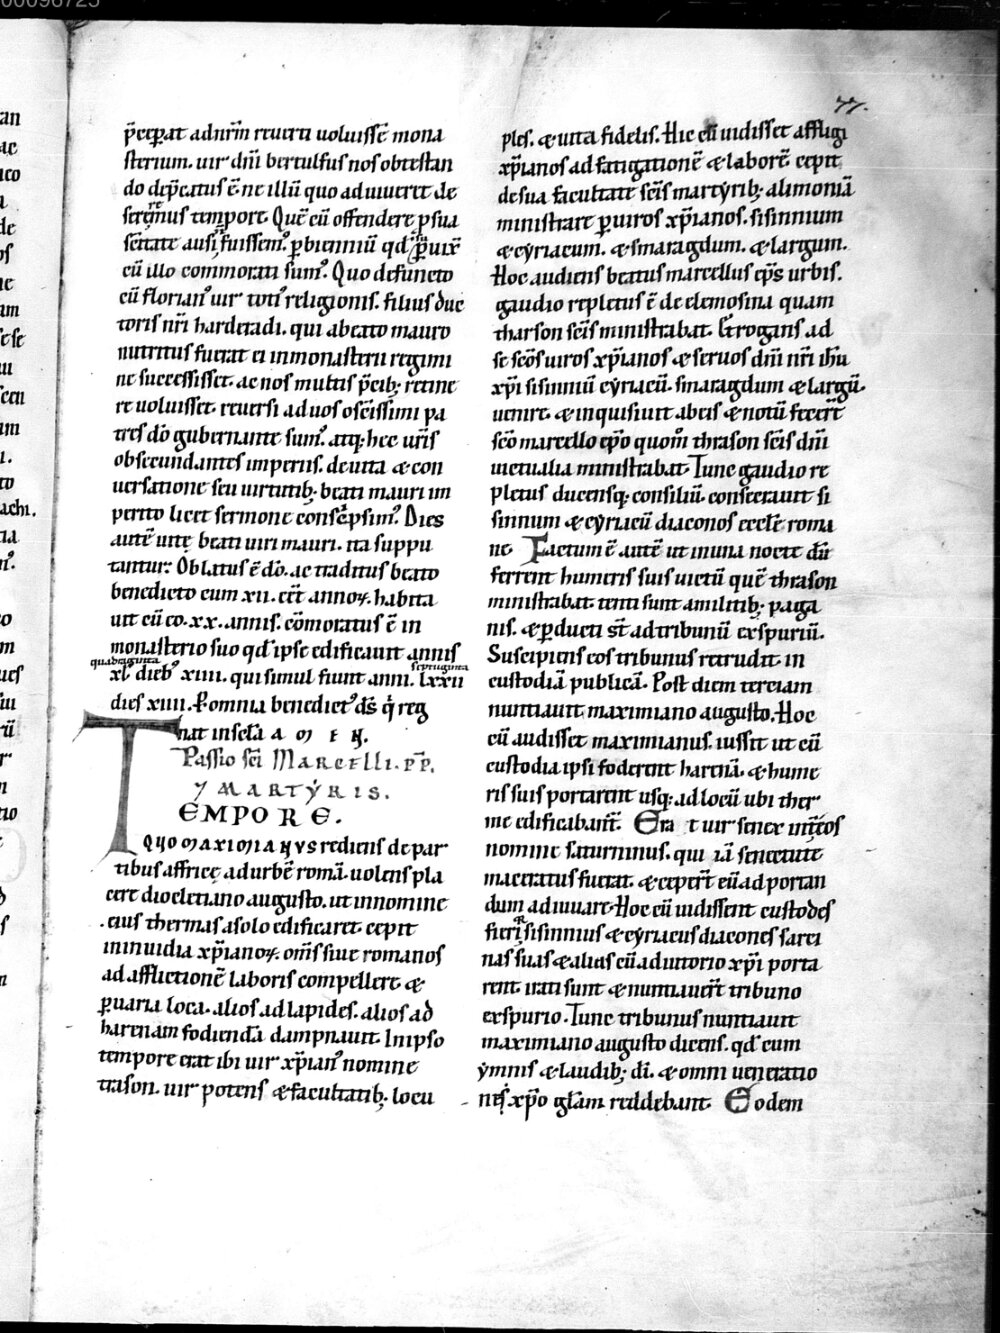 77.
p̄cep̄at ad nr̄m reuerti uoluisse mona
sterium. uir dn̄i bertulfus nos obtestan
do dep̄catus ē ne illū quo aduiueret de
sereremus tempore. Quē cū offendere p̱ sua
sc̄itate ausi fuissem᷒. p̱ bienniū qd̄ sup̱uix̄
cū illo commorati sum᷒. Quo defuncto
cū florian᷒ uir toti᷒ religionis. filius duc
toris nr̄i harderadi. qui a beato mauro
nutritus fuerat ei in monasterii regimi
ne successisset. ac nos multis p̄cib; retine
re uoluisset. reuersi ad uos o sc̄issimi pa
tres dō gubernante sum᷒. atq; hec ur̄is
obsecundantes imperiis. de uita & con
uersatione seu uirtutib; beati mauri im
perito licet sermone conscp̄sim᷒. Dies
autē uitę beati uiri mauri. ita suppu
tantur: Oblatus ē dō. ac traditus beato
benedicto cum xii. eēt annoꝝ. habita
uit cū eo. xx. annis. cōmoratus ē in
monasterio suo qd̄ ipse edificauit annis
quadraginta septuginta
xl dieb᷒ xiiii. qui simul fiunt anni. lxxii
dies xiiii. P omnia benedict᷒ ds̄ q̇ reg
nat in sc̄la AMEN.
Passio sc̄i MARCELLI. PP̄.
⁊ MARTẎRIS.
TEMPORE.
QUO MAXIMIANUS rediens de par
tibus affricę ad urbē romā. uolens pla
cere diocletiano augusto. ut in nomine
eius thermas a solo edificaret. cepit
in inuidia xp̄ianoꝝ. om̄s siue romanos
ad afflictionē laboris compellere. &
p̱ uaria loca. alios ad lapides. alios ad
harenam fodiendā dampnauit. In ipso
tempore erat ibi uir xp̄ian᷒ nomine
trason. uir potens & facultatib; locu
ples. & uita fidelis. Hic cū uidisset affligi
xp̄ianos ad fatigationē & laborē. cepit
de sua facultate sc̄is martẏrib; alimoniā
ministrare p̱ uiros xp̄ianos. sisinnium
& cẏriacum. & smaragdum. & largum.
Hoc audiens beatus marcellus ep̄s urbis.
gaudio repletus ē de elemosina quam
tharson sc̄is ministrabat. Et rogans ad
se sc̄os uiros xp̄ianos & seruos dn̄i nr̄i ih̄u
xp̄i sisinniū cẏriacū. smaragdum & largū.
uenire. & inquisiuit ab eis & notū fecer̄t
sc̄o marcello ep̄o quom̄ thrason sc̄is dn̄i
uictualia ministrabat. Tunc gaudio re
pletus ducensq; consiliū. consecrauit si
sinnum & cẏriacū diaconos eccl̄e roma
ne. Factum ē autē ut in una nocte dū
ferrent humeris suis uictū quē thrason
ministrabat. tenti sunt a militib; paga
nis. & p̱ducti st̄ ad tribunū exspuriū.
Suscipiens eos tribunus retrudit in
custodiā publicā. Post diem terciam
nuntiauit maximiano augusto. Hoc
cū audisset maximianus. iussit ut cū
custodia ipsi foderent harenā. & hume
ris suis portarent usq; ad locū ubi ther
me edificabant̄. Erat uir senex int̄ eos
nomine saturninus. qui iā senectute
maceratus fuerat. & ceper̄t eū ad portan
dum adiuuare. Hoc cū uidissent custodes
fieri. sisinnius & cẏriacus diacones sarci
nas suas & alias cū adiutorio xp̄i porta
rent. irati sunt & nuntiauer̄t tribuno
exspurio. Tunc tribunus nuntiauit
maximiano augusto dicens. qd̄ cum
ẏmnis & laudib; dī. & omni ueneratio
nes xp̄o gl̄am reddebant. Eodem